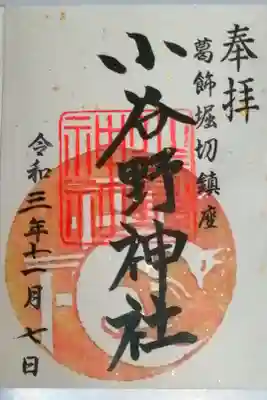 奉拝
葛飾堀切鎮座
小谷野神社
令和三年十一月七日